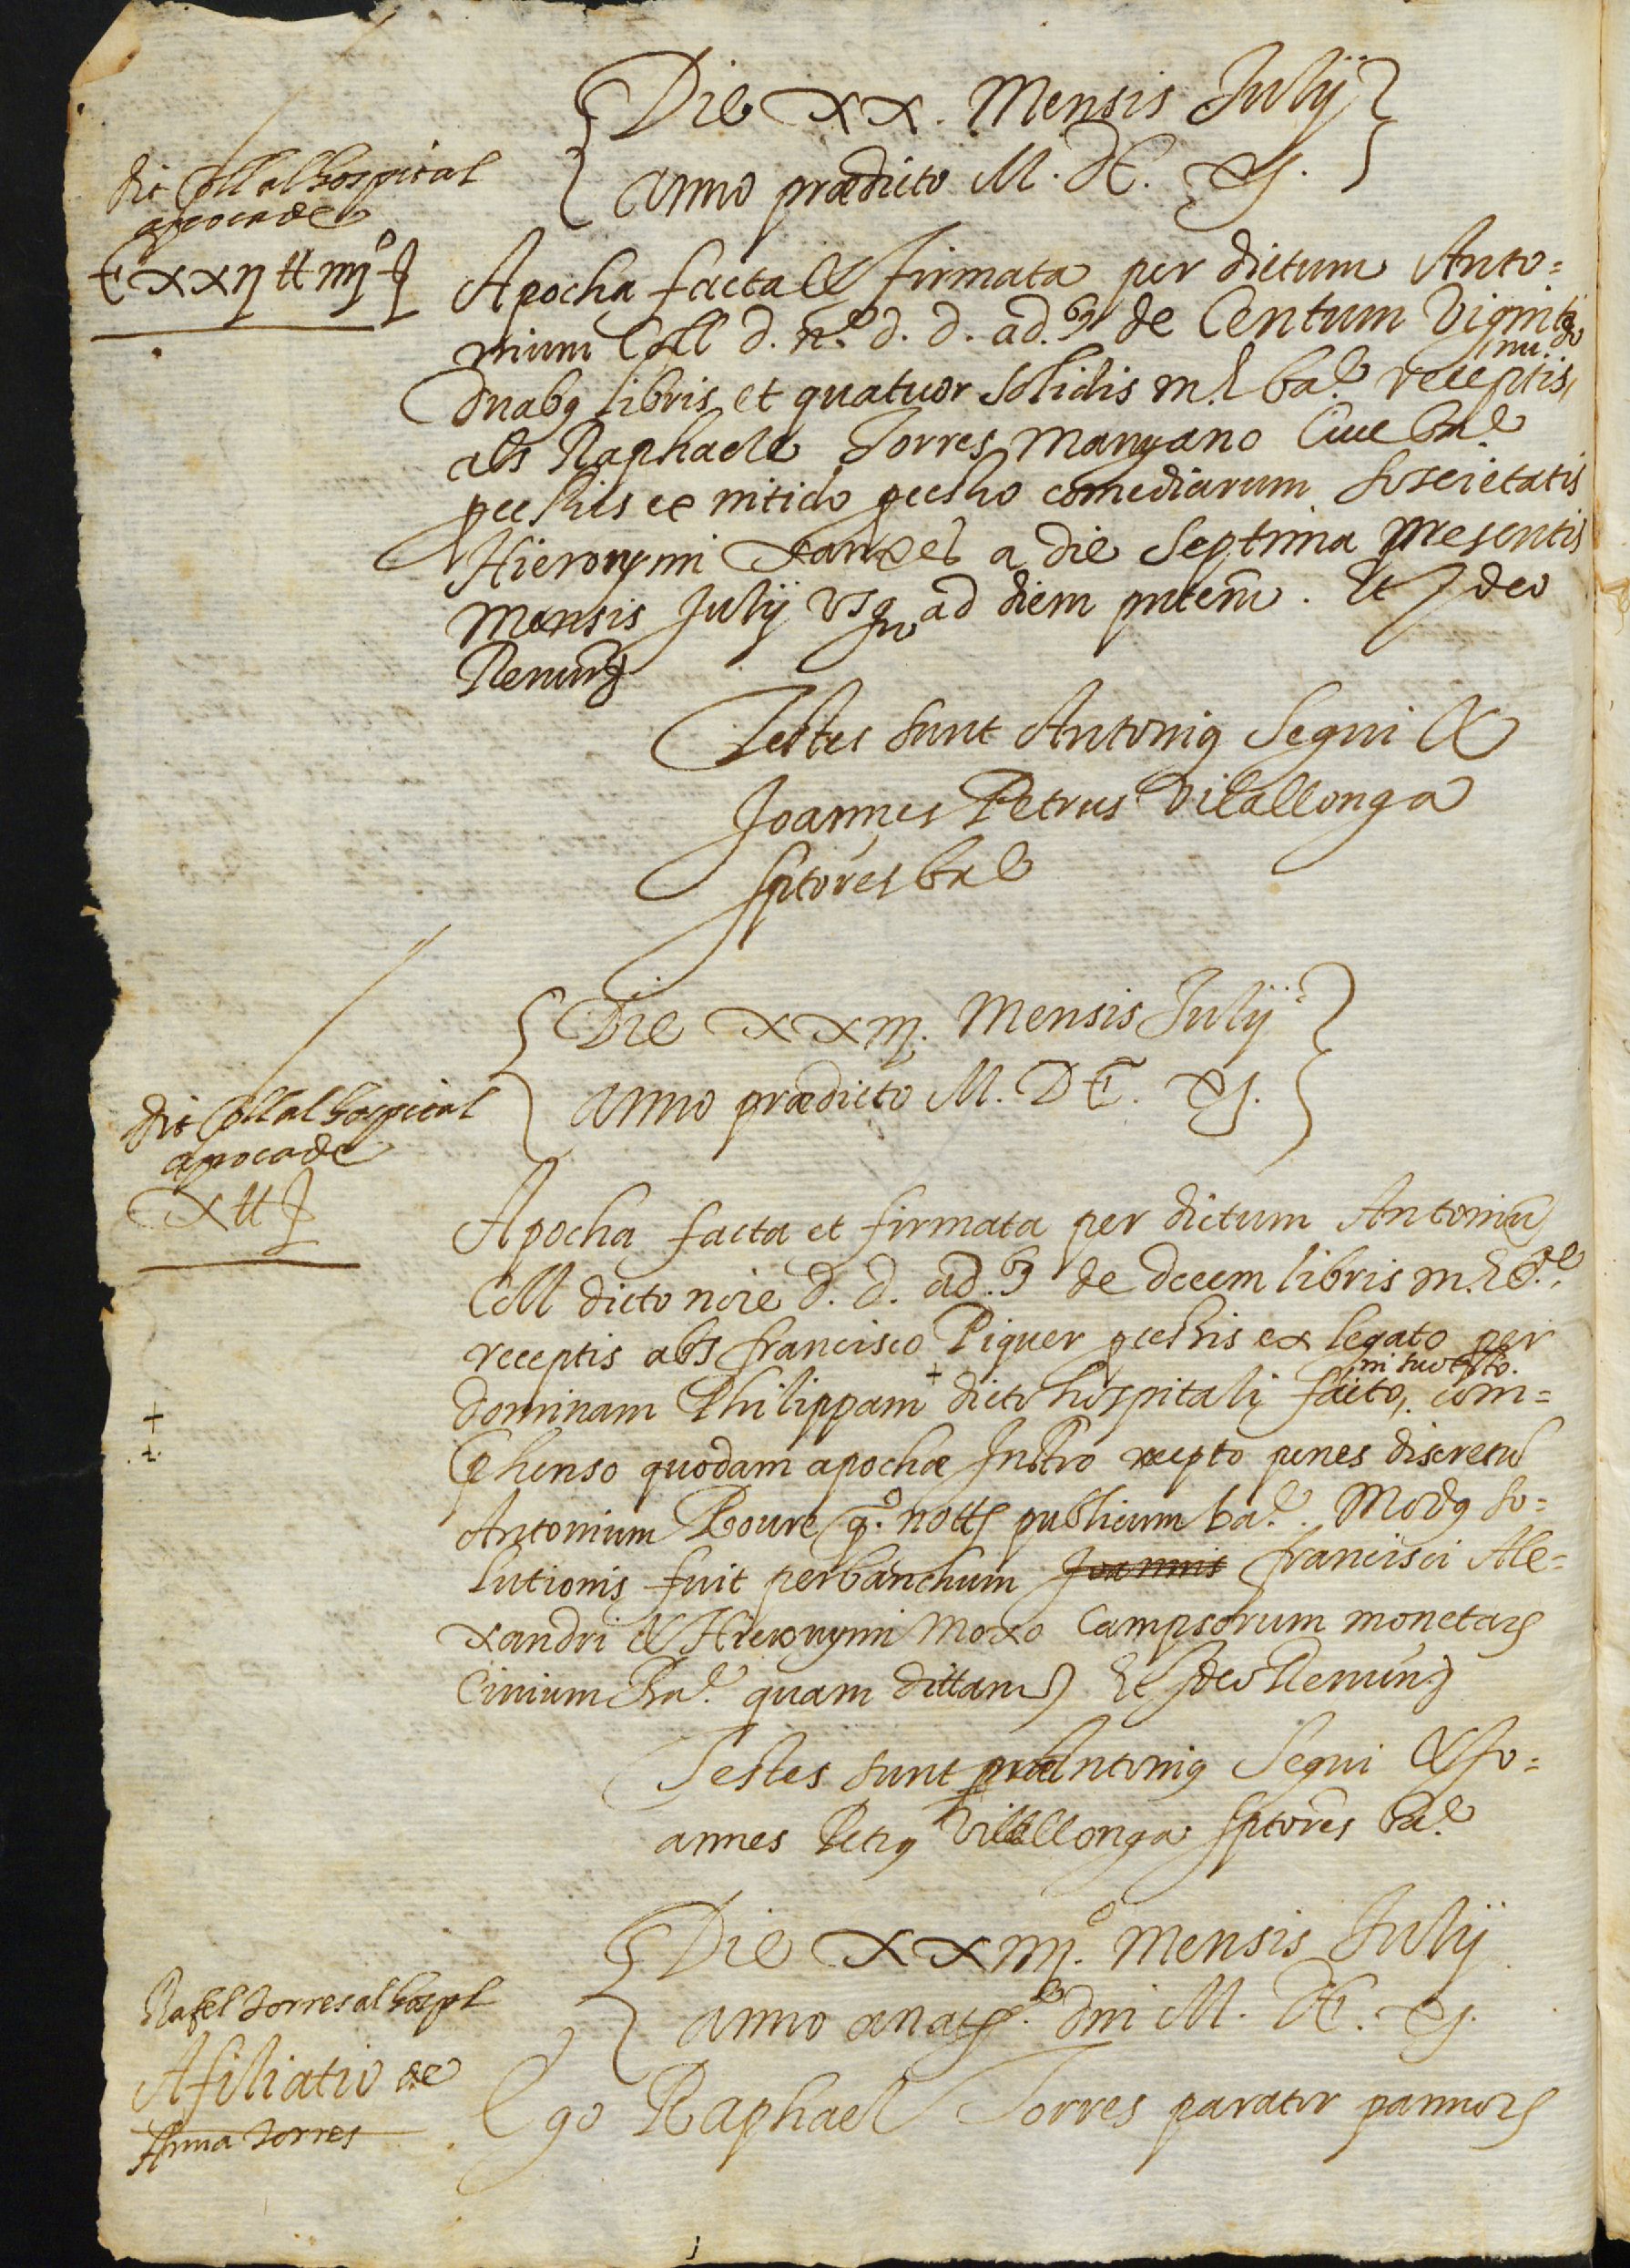 Die xx. Mensis Julij
anno prædicto M. DC. xj.
dit Coll al hospital
apoca de
Cxxij ll iiij º s
Apocha facta & firmata per dictum Anto=
nium Coll d. nº. d. d. ad.b9 de Centum Viginti
duab9 libris et quatuor solidis m. & ba.e receptis, nu.do
abs Raphaele Torres Mangano Ciue bne
ex nitido comediarum societatis
Hieronymi xanxes a die septima presentis
Mensis Julij usq ad diem pntem. Et Ideo
Renun
Testes sunt Antoni9 Segui &
Joannes Petrus Vilallonga
sptores bne
Die xxiij. Mensis Julij
anno prædicto M. DC. xj.
dit Coll al hospital
apoca de
x ll s
Apocha facta et firmata per dictum Antoniu
Coll dicto noie d. d. ad.b9 de decem libris m. &
receptis abs francisco Piquer ex legato per
dominam Philippam + dicto hospitali facto, in suo testo. com=
+
phenso quodam apochæ Instro recepto penes discretu
Antonium Roure q.º nott publicum ba.e. Mod9 so=
lutionis fuit per banchum Joannis francisci Ale=
xandri & Hieronymi Moxo Campsorum monetar
Ciuium Bne quam dittam Et Ideo Renun
Testes sunt Antoni9 Segui & Jo=
annes Petr9 Vilallonga sptores ba.e
Die xxiiij.º mensis Julij
anno a nat. dni M. DC. xj.
Rafel torres al hospl
Afiliatio de
Anna torres
Ego Raphael Torres parator pannor